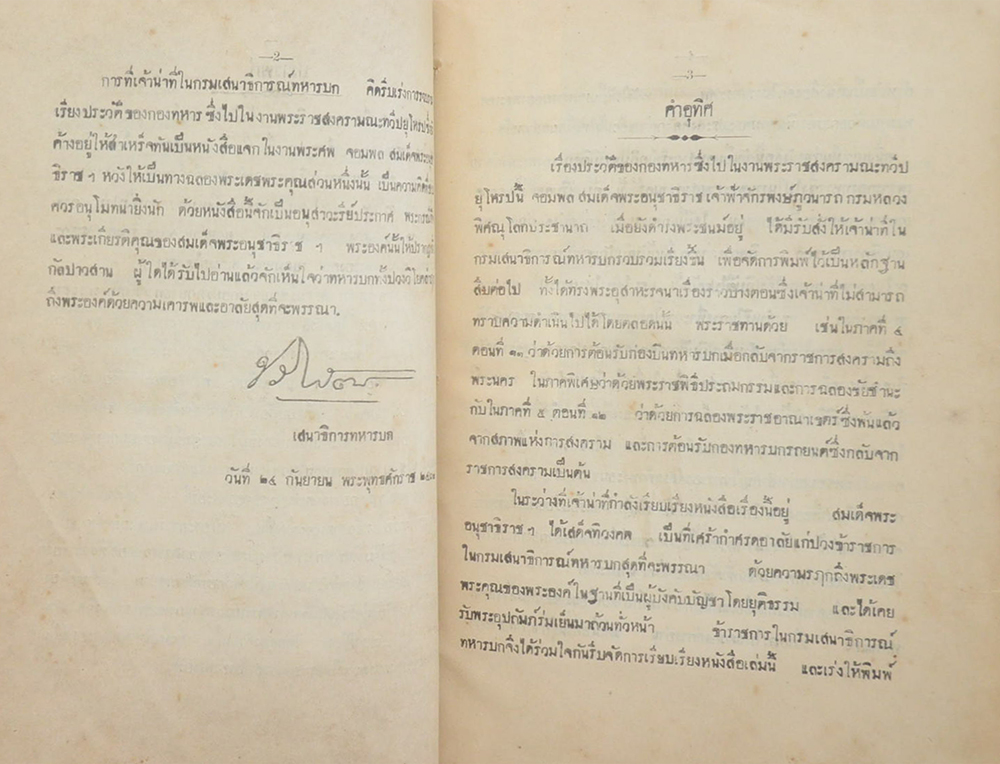 —2—
การที่เจ้าน่าที่ในกรมเสนาธิการณ์ทหารบก คิดรีบเร่งการ
เรียงประวัติของกองทหารซึ่งไปในงานพระราชสงครามณะทวีปยุโหรป
ค้างอยู่ให้สำเหร็จทันเป็นหนังสือแจกในงานพระศพ จอมพล สมเด็จพระ
ธิราช ฯ หวังให้เป็นทางฉลองพระเดชพระคุณส่วนหนึ่งนั้น เป็นความคิดที่
ควรอนุโมทนายิ่งนัก ด้วยหนังสือนี้จักเป็นอนุสาวะรีย์ประกาศ
และพระเกียรติคุณของสมเด็จพระอนุชาธิราช ฯ พระองค์นั้นให้ปรากฏ
กัลปาวสาน ผู้ใดได้รับไปอ่านแล้วจักเห็นใจว่าทหารบกทั้งปวง
ถึงพระองค์ด้วยความเคารพและอาลัยสุดที่จะพรรณา.
เสนาธิการทหารบก
วันที่ ๒๔ กันยายน พระพุทธศักราช
—3—
คำอุทิศ
เรื่องประวัติของกองทหารซึ่งไปในงานพระราชสงครามณะทวีป
ยุโหรปนี้ จอมพล สมเด็จพระอนุชาธิราช เจ้าฟ้าจักรพงษ์ภูวนารถ กรมหลวง
พิศณุโลกประชานาถ เมื่อยังดำรงพระชนม์อยู่ ได้มีรับสั่งให้เจ้าน่าที่ใน
กรมเสนาธิการณ์ทหารบกรวบรวมเรียงขึ้น เพื่อจัดการพิมพ์ไว้เป็นหลักฐาน
สืบต่อไป ทั้งได้ทรงพระอุสาหะรจนาเรื่องราวบางตอนซึ่งเจ้าน่าที่ไม่สามารถ
ทราบความดำเนินไปได้โดยตลอดนั้น พระราชทานด้วย เช่นในภาคที่ ๔
ตอนที่ ๑๓ ว่าด้วยการต้อนรับกองบินทหารบกเมื่อกลับจากราชการสงครามถึง
พระนคร ในภาคพิเศษว่าด้วยพระราชพิธีประถมกรรมและการฉลองชัยชำนะ
กับในภาคที่ ๕ ตอนที่ ๑๒ ว่าด้วยการฉลองพระราชอาณาเขตร์ซึ่งพ้นแล้ว
จากสภาพแห่งการสงคราม และการต้อนรับกองทหารบกรถยนต์ซึ่งกลับจาก
ราชการสงครามเป็นต้น
ในระว่างที่เจ้าน่าที่กำลังเรียบเรียงหนังสือเรื่องนี้อยู่ สมเด็จพระ
อนุชาธิราช ฯ ได้เสด็จทิวงคต เป็นที่เศร้ากำศรดอาลัยแก่ปวงข้าราชการ
ในกรมเสนาธิการณ์ทหารบกสุดที่จะพรรณา ด้วยความรฦกถึงพระเดช
พระคุณของพระองค์ในฐานที่เป็นผู้บังคับบัญชาโดยยุติธรรม และได้เคย
รับพระอุปถัมภ์ร่มเย็นมาถ้วนทั่วหน้า ข้าราชการในกรมเสนาธิการณ์
ทหารบกจึ่งได้ร่วมใจกันรีบจัดการเรียบเรียงหนังสือเล่มนี้ และเร่งให้พิมพ์